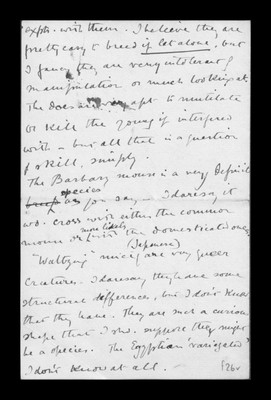 expts. with them. I believe they are
pretty easy to breed if let alone, but
I fancy they are very intolerant of
manipulation or much looking at.
The does are very apt to mutilate
or kill the young if interfered
with – but all that is a question
of skill, simply.
The Barbary mouse is a very definite
species as you say – I daresay it
wd. cross with either the common
mouse or more likely with the domesticated one.
(Japanese)
"Waltzing" mice are very queer
creatures. I daresay they have some
structural differences, but I don't know
that they have. They are such a curious
shape that I shd. suppose they might
be a species. The Egyptian 'variegated'
I don't know at all.